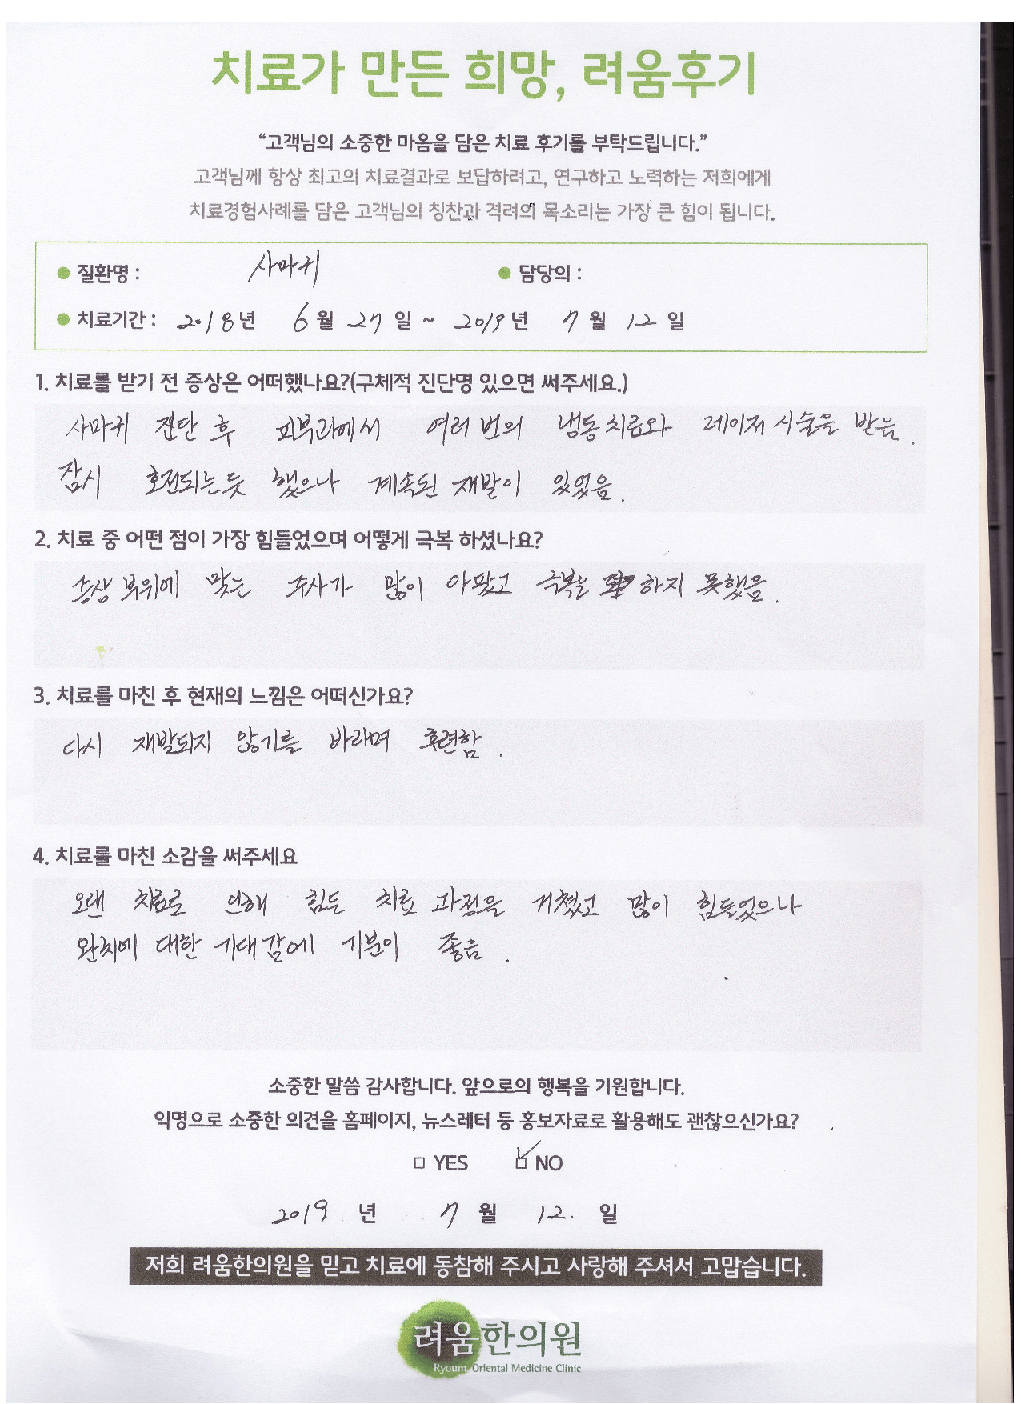 치료가 만든 희망, 려움후기
"고객님의 소중한 마음을 담은 치료 후기를 부탁드립니다."
고객님께 항상 최고의 치료결과로 보답하려고, 연구하고 노력하는 저희에게
치료경험사례를 담은 고객님의 칭찬과 격려의 목소리는 가장 큰 힘이 됩니다.
● 질환명 : 사마귀 ● 담당의 :
● 치료기간 : 2018년 6월 27일 ~ 2019년 7월 12일
1. 치료를 받기 전 증상은 어떠했나요?(구체적 진단명 있으면 써주세요.)
사마귀 진단 후 피부과에서 여러번의 냉동치료와 레이저 시술을 받음.
잠시 호전되는듯 했으나 계속된 재발이 있었음.
2. 치료 중 어떤 점이 가장 힘들었으며 어떻게 극복 하셨나요?
손상 부위에 맞는 주사가 많이 아팠고 극복을 하지 못했음.
3. 치료를 마친 후 현재의 느낌은 어떠신가요?
다시 재발되지 않기를 바라며 후련함.
4. 치료를 마친 소감을 써주세요
오랜 치료로 인해 힘든 치료 과정을 거쳤고 많이 힘들었으나
완치에 대한 기대감에 기분이 좋음.
소중한 말씀 감사합니다. 앞으로의 행복을 기원합니다.
익명으로 소중한 의견을 홈페이지, 뉴스레터 등 홍보자료로 활용해도 괜찮으신가요?
□ YES ☑ NO
2019년 7월 12. 일
저희 려움한의원을 믿고 치료에 동참해 주시고 사랑해 주셔서 고맙습니다.
려움한의원
Ryoum Oriental Medicine Clinic